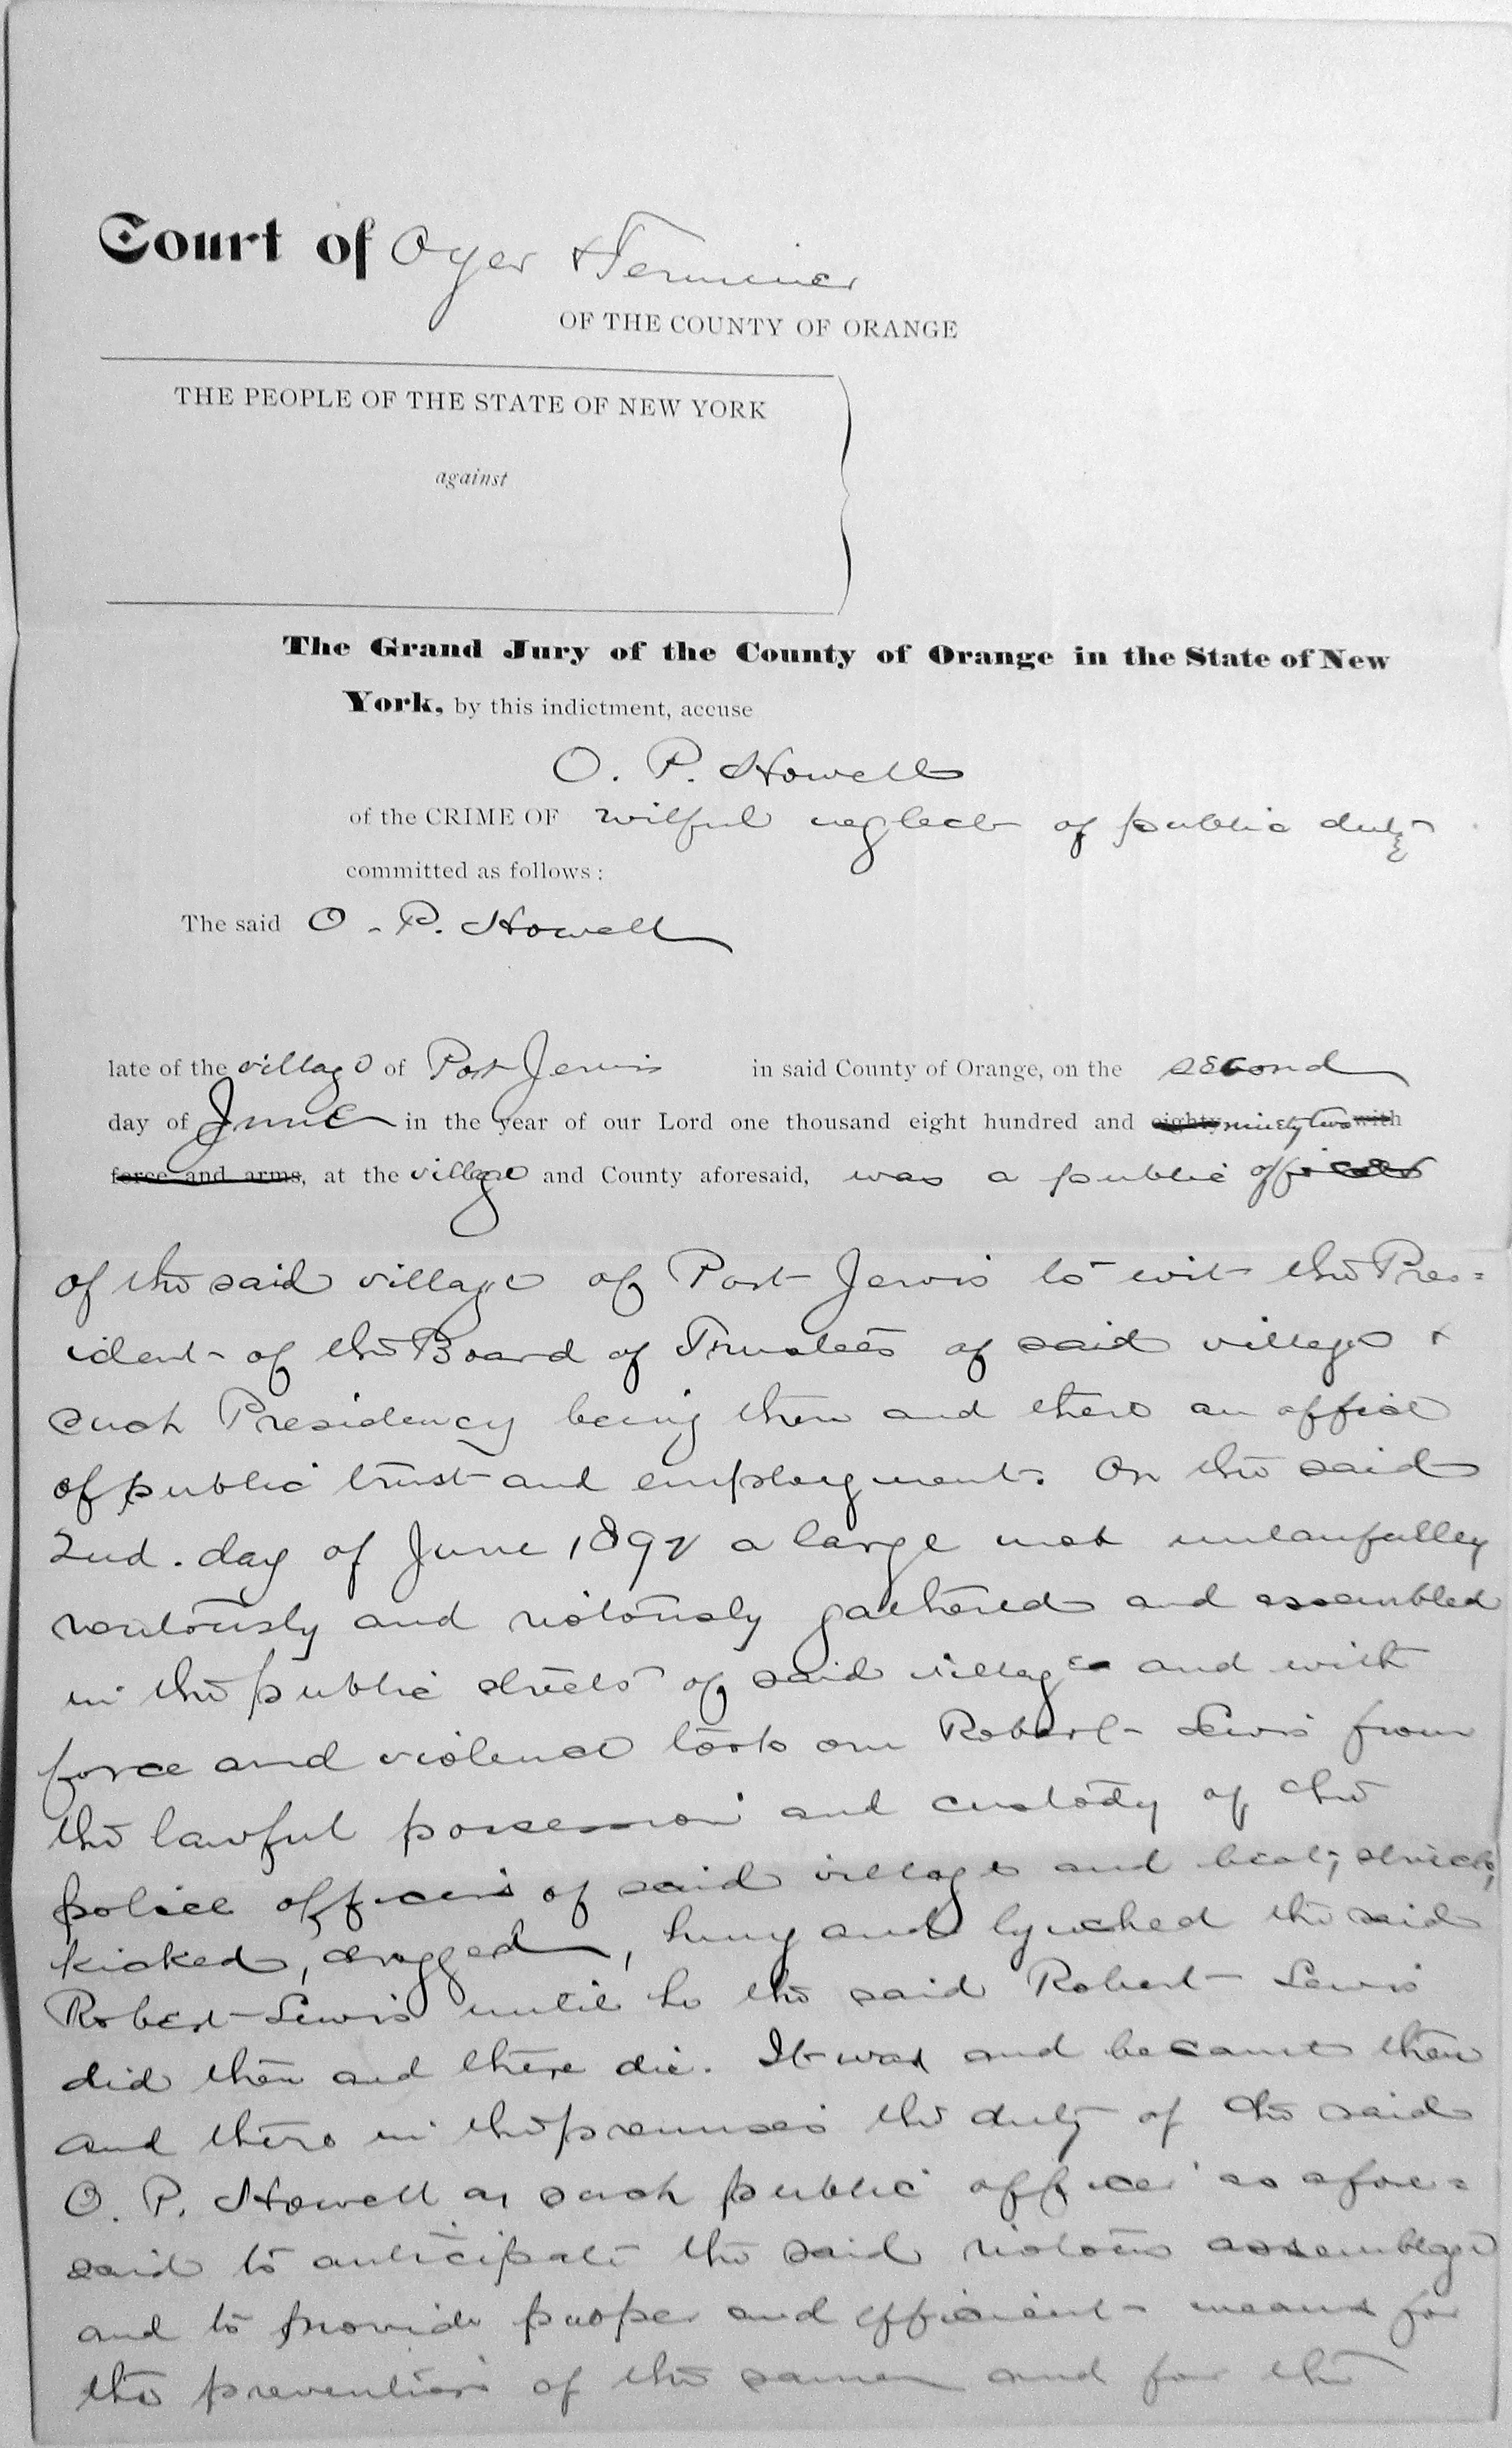 Court of Oyer & Terminer
OF THE COUNTY OF ORANGE
THE PEOPLE OF THE STATE OF NEW YORK
against
The Grand Jury of the County of Orange in the State of New
York, by this indictment, accuse
O. P. Howell
of the CRIME OF wilful neglect of public duty
committed as follows:
The said O. P. Howell
late of the village of Port Jervis in said County of Orange, on the second
day of June in the year of our Lord one thousand eight hundred and eighty ninety two with
force and arms, at the village and County aforesaid, was a public officer
of the said village of Port Jervis to wit the Pres=
ident of the Board of Trustees of said village &
such Presidency being then and there an office
of public trust and employment. On the said
2nd. day of June 1892 a large mob unlawfully
routously and riotously gathered and assembled
in the public streets of said village and with
force and violence took one Robert Lewis from
the lawful possession and custody of the
police officers of said village and beat, struck,
kicked, dragged, hung and lynched the said
Robert Lewis until he the said Robert Lewis
did then and there die. It was and became then
and there in the premises the duty of the said
O. P. Howell as such public officer as afore=
said to anticipate the said riotous assemblage
and to provide proper and efficient means for
the prevention of the same and for the